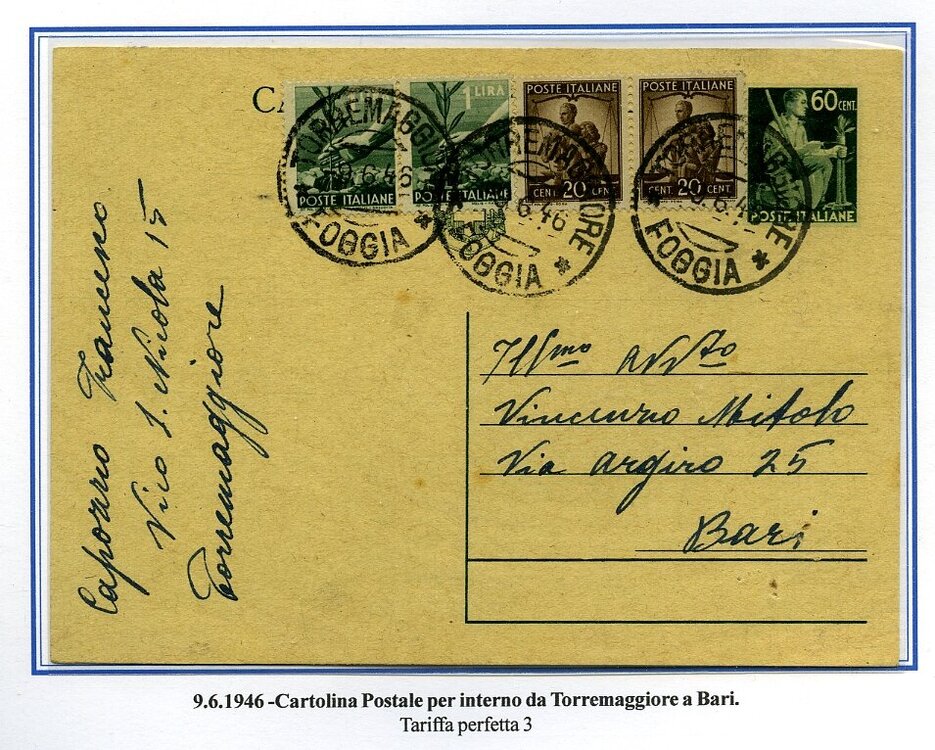 CA
1 LIRA
POSTE ITALIANE
POSTE ITALIANE
POSTE ITALIANE
CENT. 20 CENT
POSTE ITALIANE
CENT. 20 CENT
60 CENT.
POSTE ITALIANE
TORREMAGGIO
9.6.46
* FOGGIA *
RREMAGGIORE
6.46
FOGGIA *
FOGGIA *
Caporrio Franceno
Vico S. Nicola 15
Torremaggiore
Ill/mo Avv/to
Vincenzo Mitolo
Via Argiro 25
Bari
9.6.1946 -Cartolina Postale per interno da Torremaggiore a Bari.
Tariffa perfetta 3